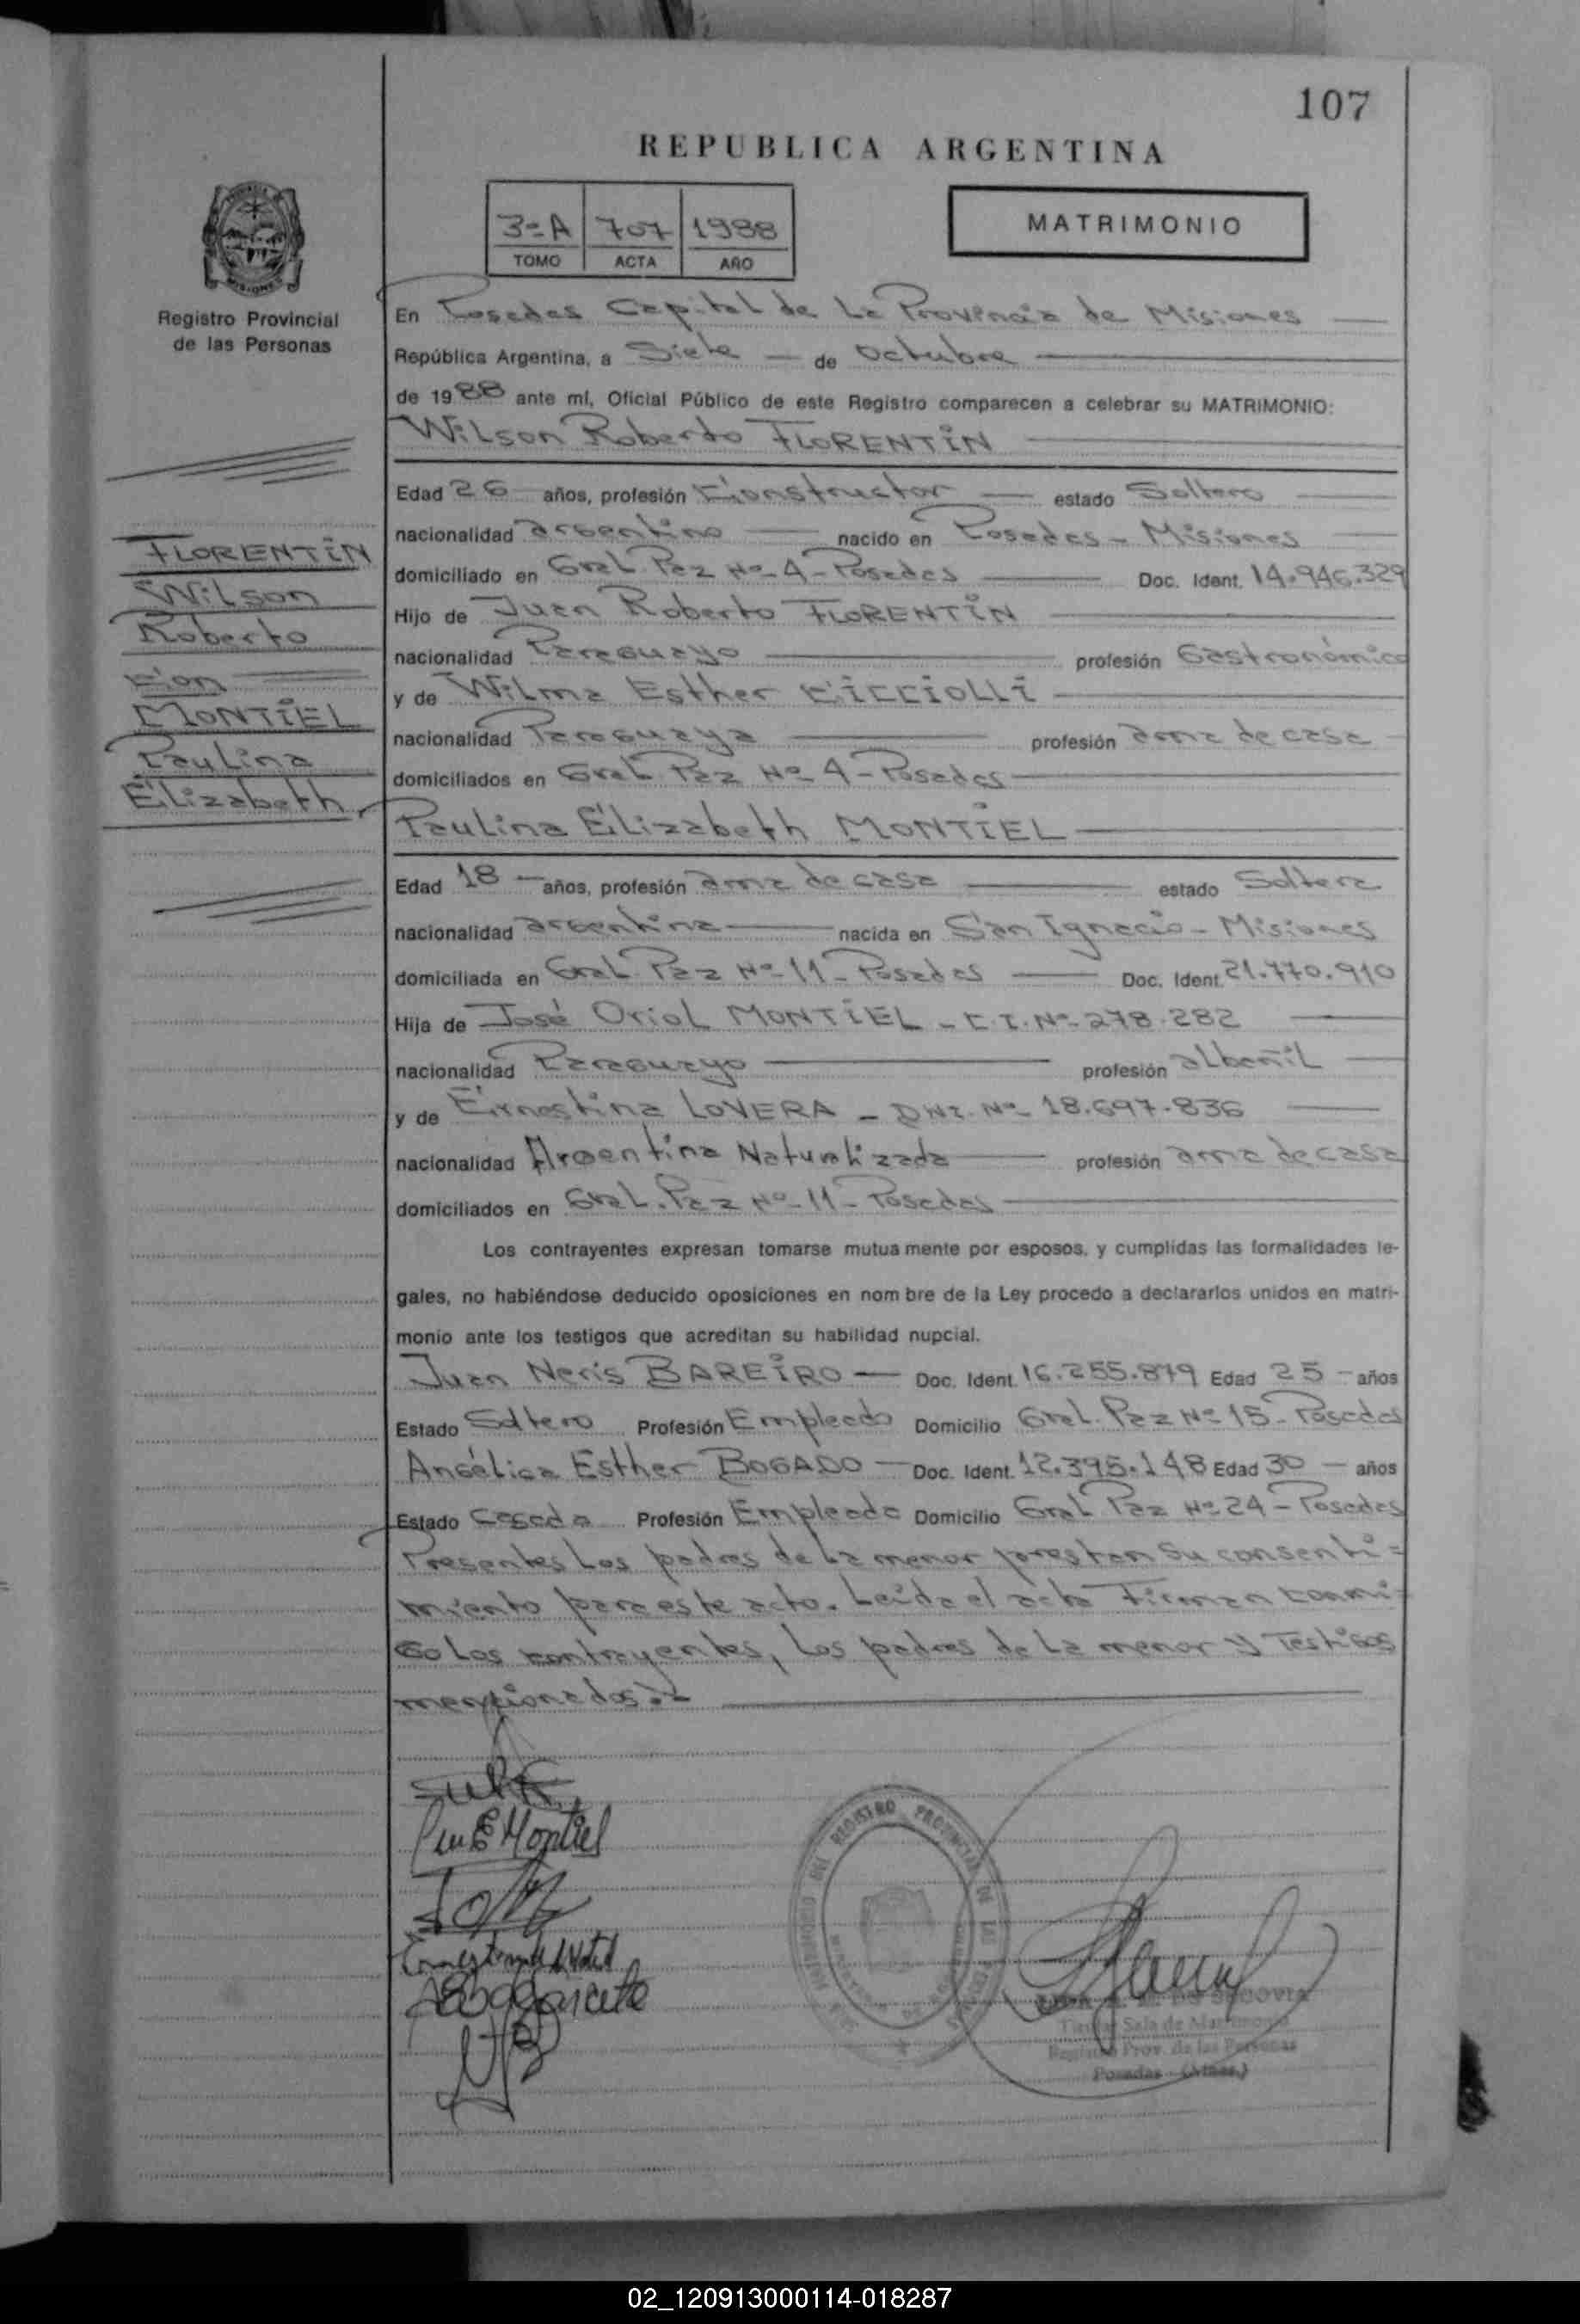 107
REPUBLICA ARGENTINA
3º A 707 1988
TOMO ACTA AÑO
MATRIMONIO
MISIONES
Registro Provincial
de las Personas
En Posadas Capital de La Provincia de Misiones
República Argentina, a Siete de octubre
de 1988 ante mí, Oficial Público de este Registro comparecen a celebrar su MATRIMONIO:
Wilson Roberto FLORENTÍN
Edad 26 años, profesión Constructor estado Soltero
nacionalidad argentino nacido en Posadas - Misiones
domiciliado en Gral. Paz Nº 4 - Posadas Doc. Ident. 14.946.329
Hijo de Juan Roberto FLORENTÍN
nacionalidad Paraguayo profesión Gastronómico
y de Wilma Esther CICCIOLLI
nacionalidad Paraguaya profesión ama de casa
domiciliados en Gral. Paz Nº 4 - Posadas
Paulina Elizabeth MONTIEL
Edad 18 años, profesión ama de casa estado Soltera
nacionalidad argentina nacida en San Ignacio - Misiones
domiciliada en Gral. Paz Nº 11 - Posadas Doc. Ident. 21.770.910
Hija de José Oriol MONTIEL - C.I. Nº 278.282
nacionalidad Paraguayo profesión albañil
y de Ernestina LOVERA - DNI. Nº 18.697.836
nacionalidad Argentina Naturalizada profesión ama de casa
domiciliados en Gral. Paz Nº 11 - Posadas
Los contrayentes expresan tomarse mutua mente por esposos, y cumplidas las formalidades le-
gales, no habiéndose deducido oposiciones en nom bre de la Ley procedo a declararlos unidos en matri-
monio ante los testigos que acreditan su habilidad nupcial.
Juan Neris BAREIRO Doc. Ident. 16.255.879 Edad 25 años
Estado Soltero Profesión Empleado Domicilio Gral. Paz Nº 15 - Posadas
Angélica Esther BOGADO Doc. Ident. 12.395.148 Edad 30 años
Estado Casada Profesión Empleada Domicilio Gral. Paz Nº 24 - Posadas
Presentes los padres de la menor prestan su consenti=
miento para este acto. Leída el acta Firman conmi=
go los contrayentes, los padres de la menor y Testigos
mencionados.-
FLORENTÍN
Wilson
Roberto
con
MONTIEL
Paulina
Elizabeth
Montiel
DEL REGISTRO PROVINCIAL DE LAS
SEGOVIA
Titular Sala de Matrimonio
Registro Prov. de las Personas
Posadas - (Mnes.)
02_120913000114-018287